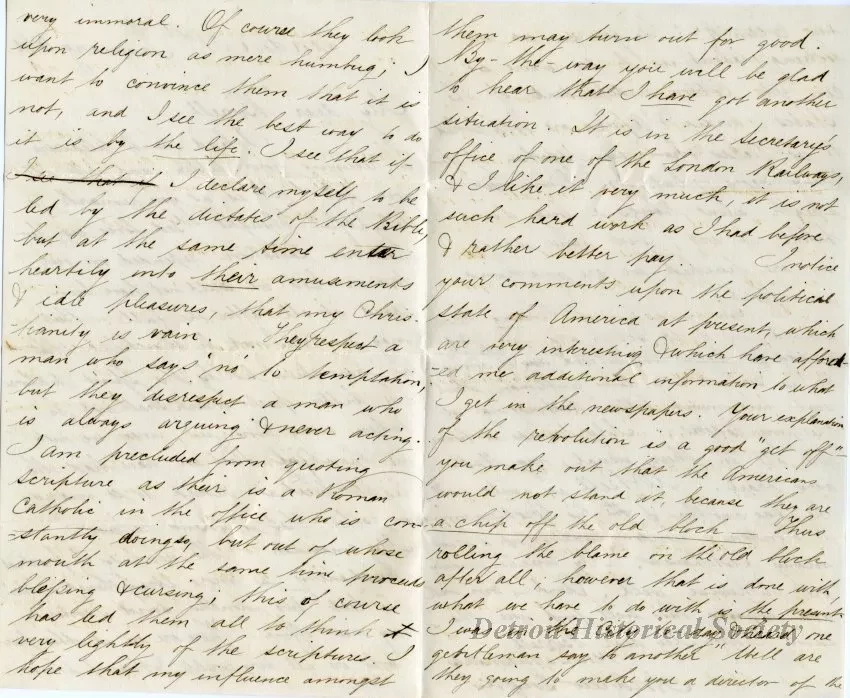 very immoral. Of course they look
upon religion as mere humbug; I
want to convince them that it is
not, and I see the best way to do
it is by the life. I see that if
I see that if I declare myself to be
led by the dictates of the Bible,
but at the same time enter
heartily into their amusements
& idle pleasures, that my Chris-
tianity is vain. They respect a
man who says "no" to temptation,
but they disrespect a man who
is always arguing & never acting.
I am precluded from quoting
scripture as their is a Roman
Catholic in the office who is con-
-stantly doing so, but out of whose
mouth at the same time proceeds
blessing & cursing; this of course
has led them all to think
very lightly of the scriptures. I
hope that my influence amongst
them may turn out for good.
By-the-way you will be glad
to hear that I have got another
situation. It is in the secretary's
office of one of the London Railways,
& I like it very much, it is not
such hard work as I had before
& rather better pay. I notice
your comments upon the political
state of America at present, which
are very interesting & which have afford-
-ed me additional information to what
I get in the newspapers. Your explanation
of the revolution is a good "get off"
you make out that the Americans
would not stand it, because they are
a chip off the old block — Thus
rolling the blame on the old block
after all; however that is done with
what we have to do with is the present
I was in the City day & heard one
gentleman say to another "Well are
they going to make you a director of the
Detroit Historical Society